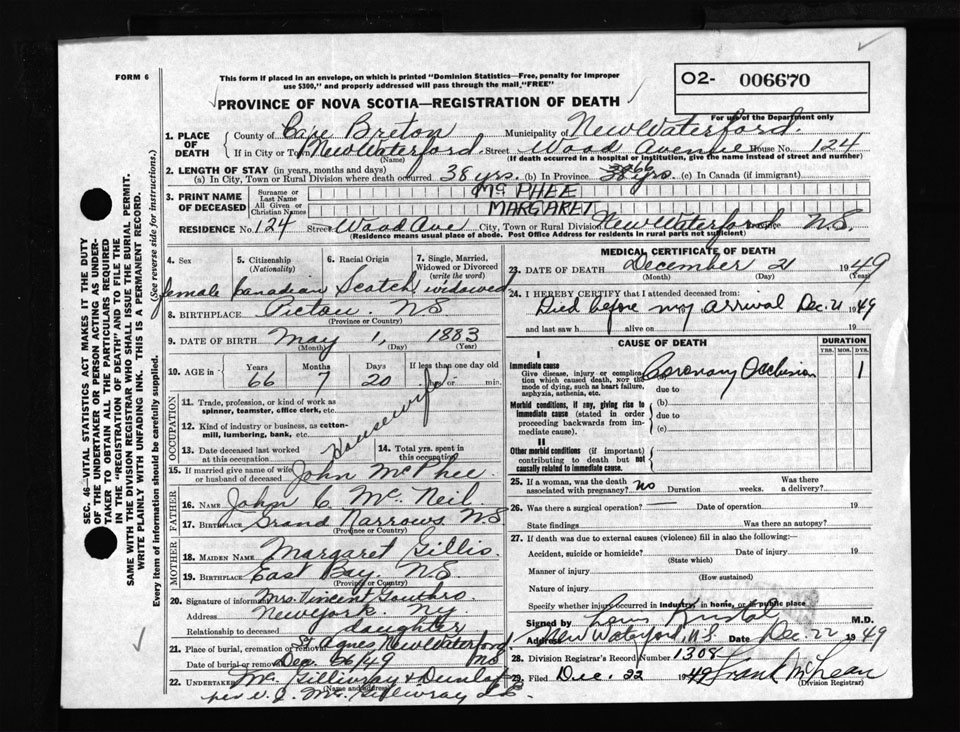 FORM 6
This form if placed in an envelope, on which is printed "Dominion Statistics—Free, penalty for improper
use $300," and properly addressed will pass through the mail, "FREE"
O2- 006670
For use of the Department only
PROVINCE OF NOVA SCOTIA—REGISTRATION OF DEATH
1. PLACE OF DEATH
County of Cape Breton Municipality of New Waterford
If in City or Town New Waterford Street Wood Avenue House No. 124
(Name) (If death occurred in a hospital or institution, give the name instead of street and number)
2. LENGTH OF STAY (in years, months and days)
(a) In City, Town or Rural Division where death occurred 38 yrs. (b) In Province 66 38 yrs. (c) In Canada (if immigrant)
3. PRINT NAME OF DECEASED
Surname or Last Name McPHEE
All Given or Christian Names MARGARET
RESIDENCE No. 124 Street Wood Ave City, Town or Rural Division New Waterford Province N.S.
(Residence means usual place of abode. Post Office Address for residents in rural parts not sufficient)
4. Sex female
5. Citizenship (Nationality) Canadian
6. Racial Origin Scotch
7. Single, Married, Widowed or Divorced (write the word) widowed
8. BIRTHPLACE Pictou NS
(Province or Country)
9. DATE OF BIRTH May 1, 1883
(Month) (Day) (Year)
10. AGE in Years 66 Months 7 Days 20 If less than one day old hrs. or min.
OCCUPATION
11. Trade, profession, or kind of work as spinner, teamster, office clerk, etc.
12. Kind of industry or business, as cotton-mill, lumbering, bank, etc.
Housewife
13. Date deceased last worked at this occupation
14. Total yrs. spent in this occupation
15. If married give name of wife or husband of deceased John McPhee
FATHER
16. NAME John C. McNeil
17. BIRTHPLACE Grand Narrows N.S
(Province or Country)
MOTHER
18. MAIDEN NAME Margaret Gillis
19. BIRTHPLACE East Bay NS
(Province or Country)
20. Signature of informant Mrs. Vincent
Address New York. Ny.
Relationship to deceased daughter
21. Place of burial, cremation or removal St Agnes New Waterford NS
Date of burial or removal Dec. 26/49
22. UNDERTAKER McGillivray & Dunlap
(Name and address)
per McGillivray
MEDICAL CERTIFICATE OF DEATH
23. DATE OF DEATH December 21 1949
(Month) (Day) (Year)
24. I HEREBY CERTIFY that I attended deceased from:
Died before my arrival Dec. 21 1949
and last saw h alive on 19
CAUSE OF DEATH
DURATION
YRS. MOS. DYS.
I
Immediate cause
Give disease, injury or complication which caused death, not the mode of dying, such as heart failure, asphyxia, asthenia, etc.
(a) Coronary Occlusion 1
due to
Morbid conditions, if any, giving rise to immediate cause (stated in order proceeding backwards from immediate cause).
(b)
due to
(c)
II
Other morbid conditions (if important) contributing to death but not causally related to immediate cause.
25. If a woman, was the death associated with pregnancy? No Duration weeks. Was there a delivery?
26. Was there a surgical operation? — Date of operation 19
State findings Was there an autopsy?
27. If death was due to external causes (violence) fill in also the following:—
Accident, suicide or homicide? Date of injury 19
(State which)
Manner of injury
(How sustained)
Nature of injury
Specify whether injury occurred in industry, in home, or in public place
Signed by Louis M.D.
Address New Waterford, N.S. Date Dec. 22 1949
28. Division Registrar's Record Number 1308
29. Filed Dec. 22 1949 Frank McLean
(Division Registrar)
SEC. 46—VITAL STATISTICS ACT MAKES IT THE DUTY
OF THE UNDERTAKER OR PERSON ACTING AS UNDER-
TAKER TO OBTAIN ALL THE PARTICULARS REQUIRED
IN THE "REGISTRATION OF DEATH" AND TO FILE THE
SAME WITH THE DIVISION REGISTRAR WHO SHALL ISSUE THE BURIAL PERMIT.
WRITE PLAINLY WITH UNFADING INK. THIS IS A PERMANENT RECORD.
Every item of Information should be carefully supplied. (See reverse side for instructions.)